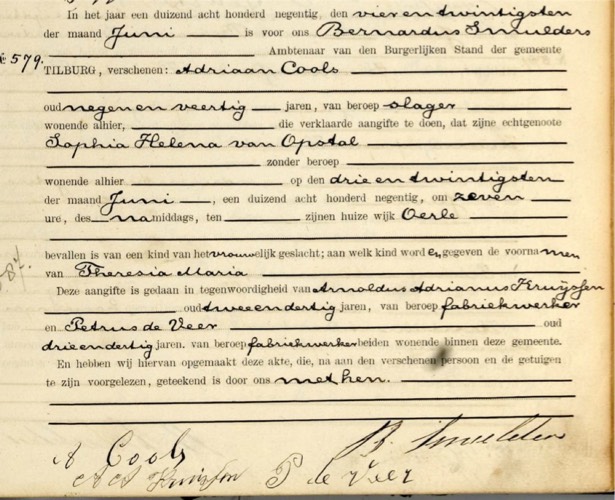 In het jaar een duizend acht honderd negentig, den vier en twintigsten
der maand Juni is voor ons Bernardus Smulders
Ambtenaar van den Burgerlijken Stand der gemeente
№ 579. TILBURG, verschenen: Adriaan Cools
oud negen en veertig jaren, van beroep slager
wonende alhier, die verklaarde aangifte te doen, dat zijne echtgenoote
Sophia Helena van Opstal
zonder beroep
wonende alhier op den drie en twintigsten
der maand Juni, een duizend acht honderd negentig, om zeven
ure, des namiddags, ten zijnen huize wijk Oerle
bevallen is van een kind van het vrouwelijk geslacht; aan welk kind word en gegeven de voornamen
van Theresia Maria
Deze aangifte is gedaan in tegenwoordigheid van Arnoldus Adrianus Kruijssen
oud twee en dertig jaren, van beroep fabriekwerker
en Petrus de Veer oud
drie en dertig jaren. van beroep fabriekwerker beiden wonende binnen deze gemeente.
En hebben wij hiervan opgemaakt deze akte, die, na aan den verschenen persoon en de getuigen
te zijn voorgelezen, geteekend is door ons met hen.
A Cools B. Smulders
A A Kruissen P de Veer